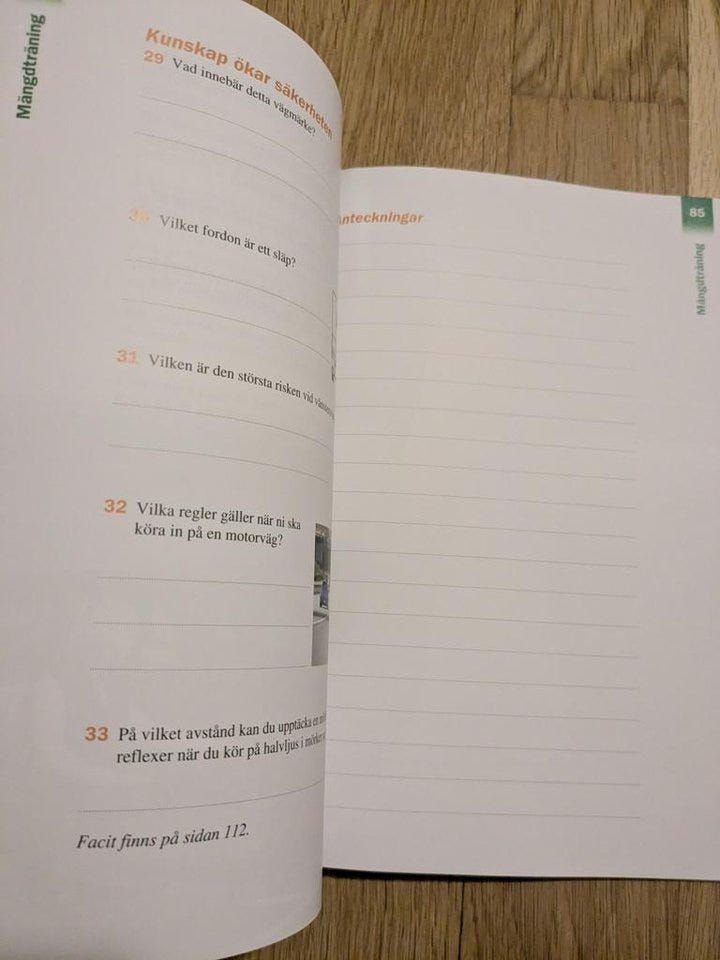 Mängdträning
Kunskap ökar säkerheten
29 Vad innebär detta vägmärke?
30 Vilket fordon är ett släp?
31 Vilken är den största risken vid
32 Vilka regler gäller när ni ska
köra in på en motorväg?
33 På vilket avstånd kan du upptäcka en
reflexer när du kör på halvljus i
Facit finns på sidan 112.
Anteckningar
85
Mängdträning